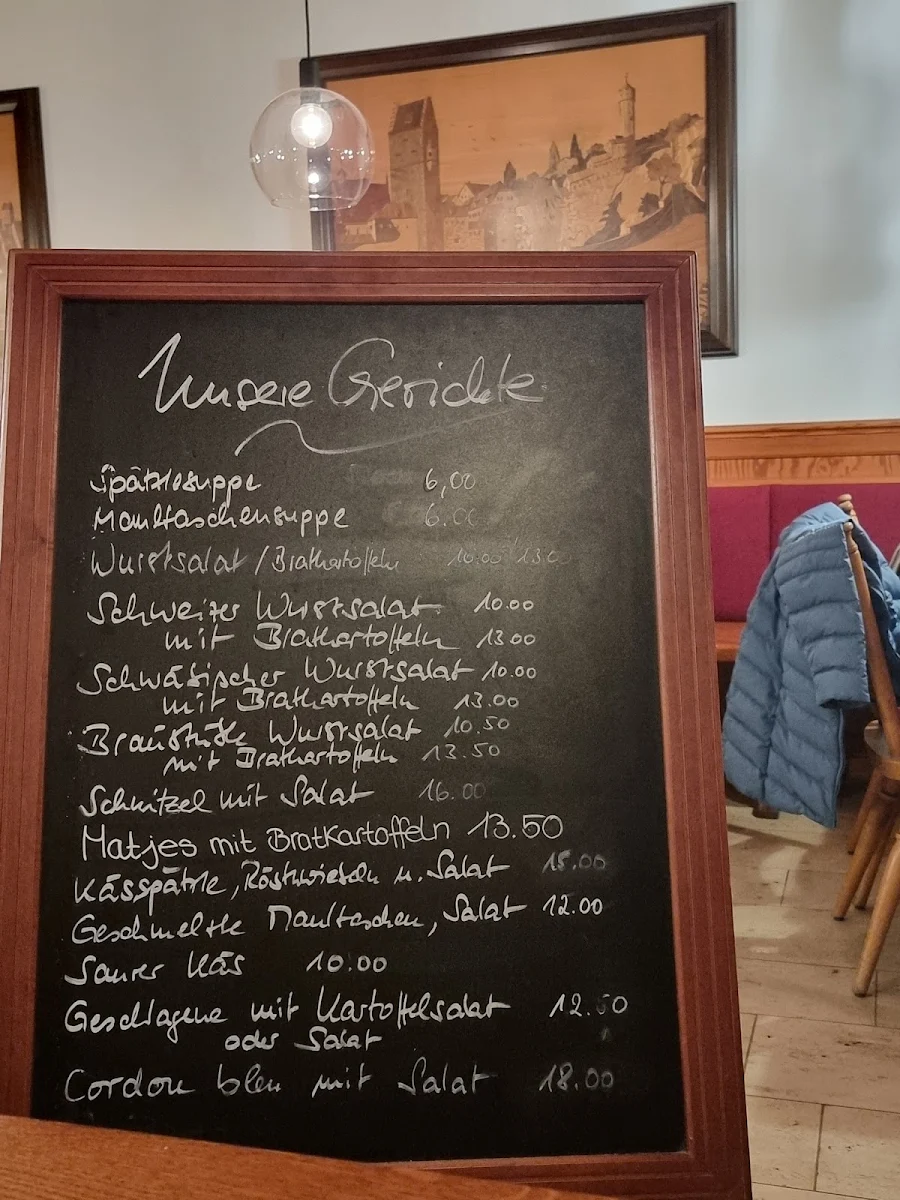 Unsere Gerichte
Spätzlesuppe 6,00
Maultaschensuppe 6.00
Wurstsalat / Bratkartoffeln 10.00 / 13.00
Schweizer Wurstsalat 10.00
mit Bratkartoffeln 13.00
Schwäbischer Wurstsalat 10.00
mit Bratkartoffeln 13.00
Bräustüble Wurstsalat 10.50
mit Bratkartoffeln 13.50
Schnitzel mit Salat 16.00
Matjes mit Bratkartoffeln 13.50
Kässpätzle, Röstzwiebeln u. Salat 15.00
Geschmelzte Maultaschen, Salat 12.00
Saurer Käs 10.00
Geschlagene mit Kartoffelsalat 12.50
oder Salat
Cordon bleu mit Salat 18.00